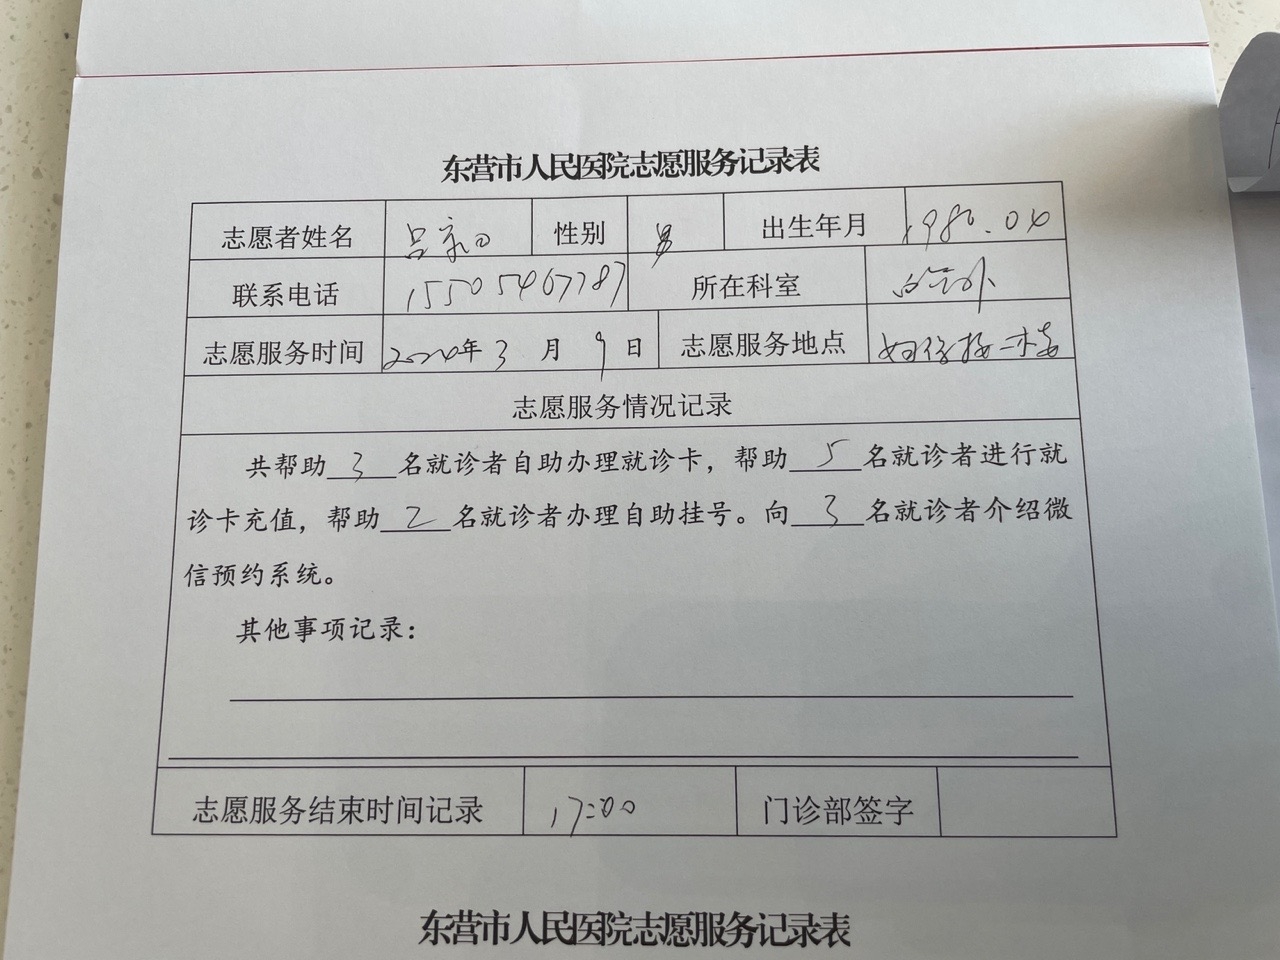 东营市人民医院志愿服务记录表
志愿者姓名 吕 性别 男 出生年月 1980.04
联系电话 15505467787 所在科室 外
志愿服务时间 2024年3月9日 志愿服务地点 妇保楼二楼
志愿服务情况记录
共帮助3名就诊者自助办理就诊卡，帮助5名就诊者进行就
诊卡充值，帮助2名就诊者办理自助挂号。向3名就诊者介绍微
信预约系统。
其他事项记录：
志愿服务结束时间记录 17:00 门诊部签字
东营市人民医院志愿服务记录表